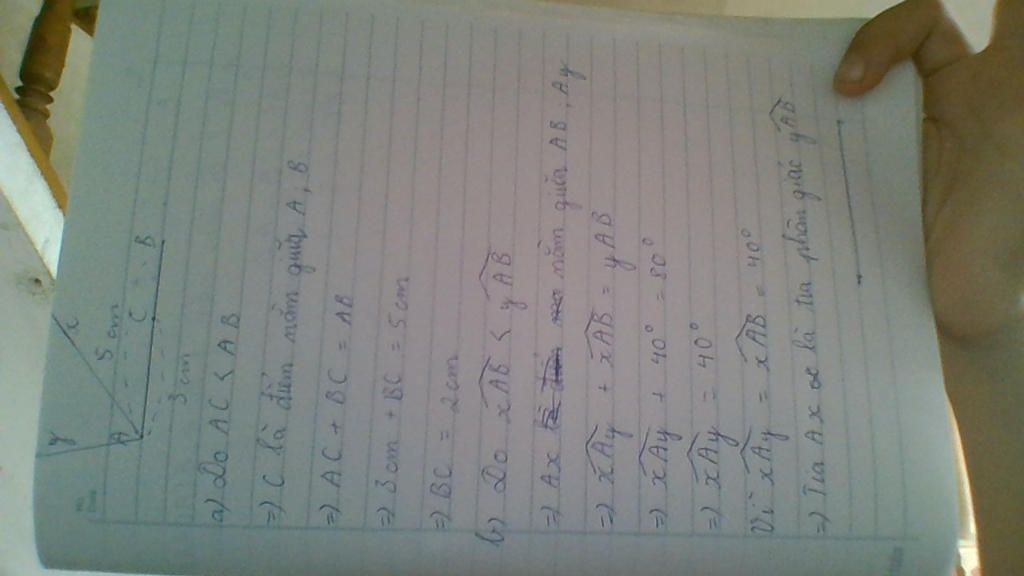 y x
A 5cm C B
3cm
a) Do AC < AB
=) C là điểm nằm giữa A, B
=) AC + BC = AB
=) 3cm + BC = 5cm
=) BC = 2cm
b) Do xAB < yAB
=) Ax nằm giữa AB, Ay
=) xAy + xAB = yAB
=) xAy + 40° = 80°
=) xAy = 40°
Vì xAy = xAB = 40°
=) Tia Ax là tia phân giác yAB